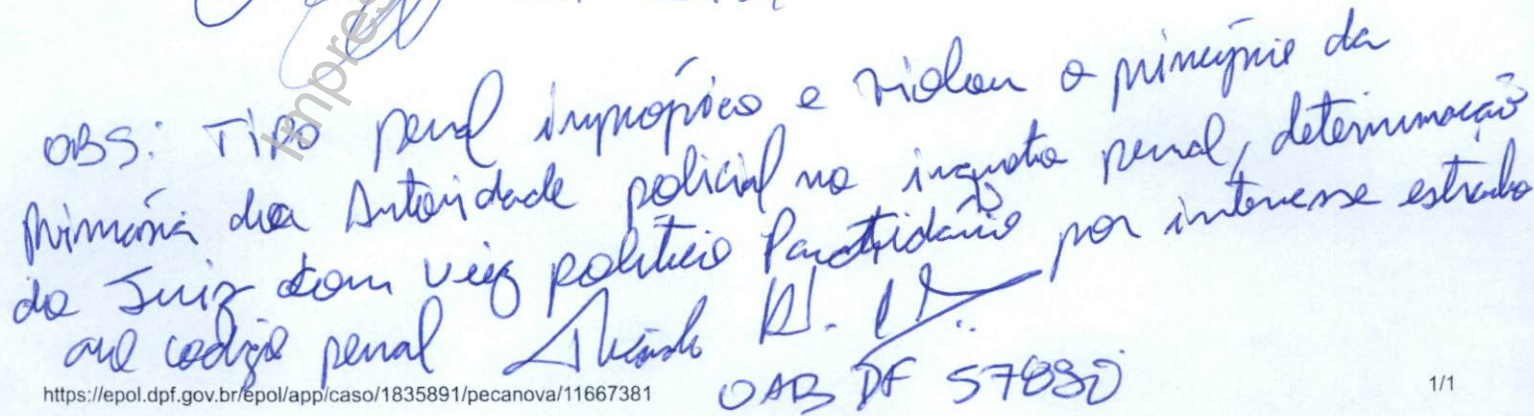 Impres
OBS: Tipo penal impróprio e violou o princípio da
primária da Autoridade policial no penal, determinação
do Juiz com viez politico Partidário por interesse estranho
ao codigo penal
OAB DF
https://epol.dpf.gov.br/epol/app/caso/1835891/pecanova/11667381
1/1